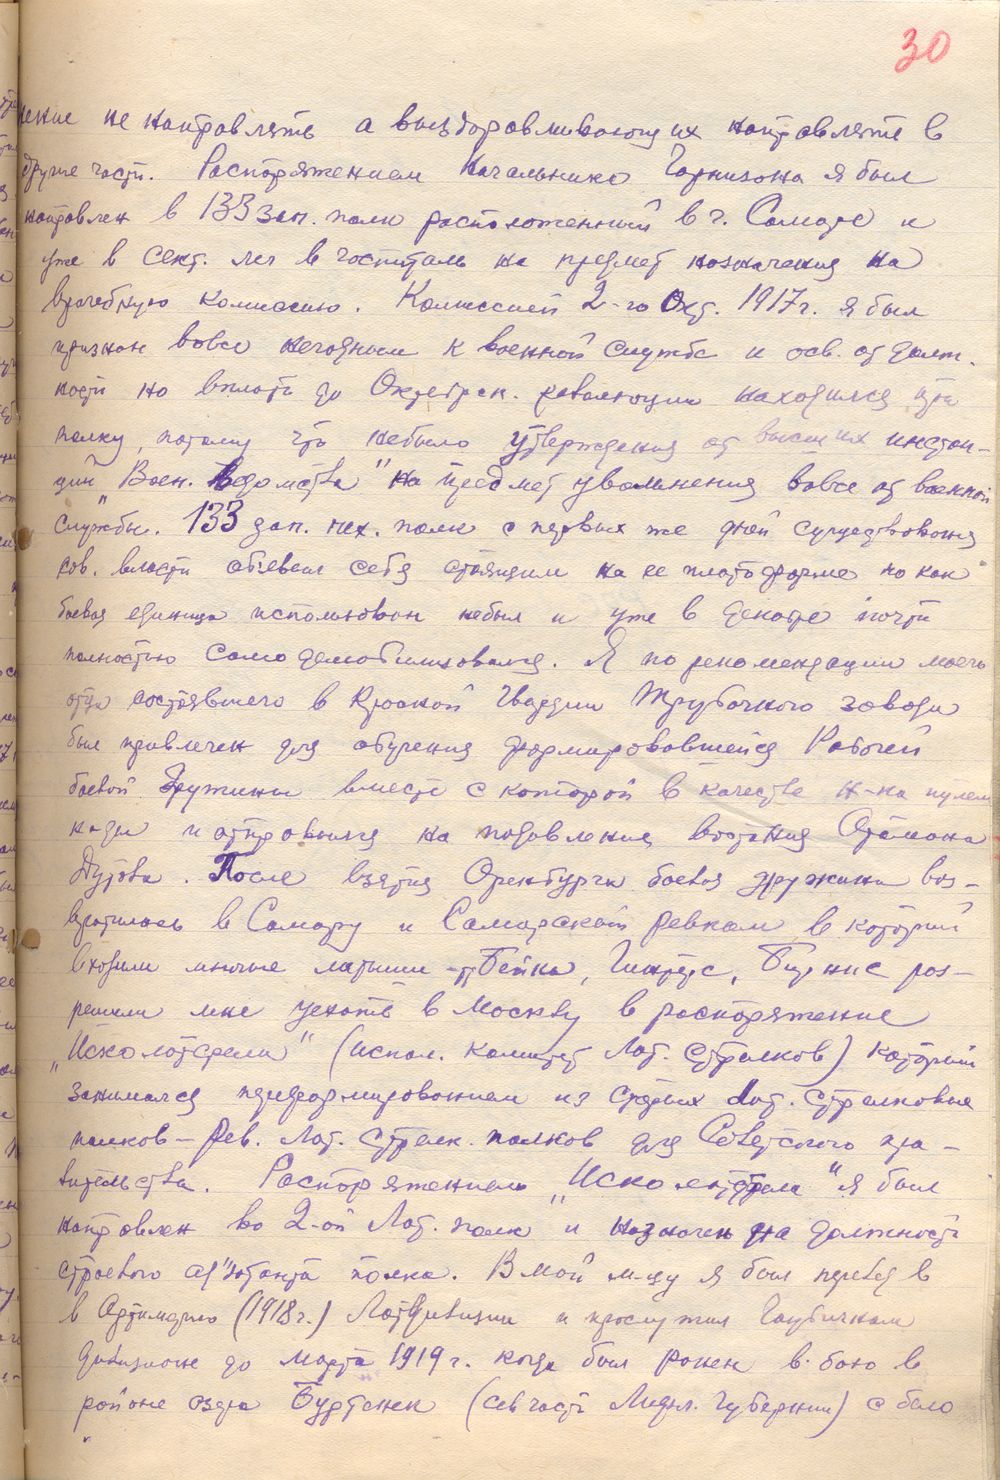 30
ение не направлять а выздоравливающих направлять в
другие части. Распоряжением Начальника Гарнизона я был
направлен в 133 зап. полк расположенный в г. Самаре и
уже в сент. лег в госпиталь на предмет назначения на
врачебную комиссию. Комиссией 2-го Окт. 1917 г. я был
признан вовсе негодным к военной службе и осв. от долж.
ности но вплоть до Октябрьск. революции находился при
полку, потому что небыло утверждения от высших инстан-
ций "Воен. Ведомства" на предмет увольнения вовсе от военной
службы. 133 зап. пех. полк с первых же дней существования
сов. власти объявил себя стоящим на ее платформе но как
боевая единица использован небыл и уже в декабре почти
полностью само демобилизовался. Я по рекомендации моего
отца состоявшего в Красной Гвардии Трубочного завода
был привлечен для обучения формировавшейся Рабочей
боевой дружины вместе с которой в качестве н-ка пулем
канды и отправился на подавление востания Атамана
Дутова. После взятия Оренбурга боевая дружина воз-
вратилась в Самару и Самарский ревком в который
входили многие латыши - Бейка, Гинтерс, раз-
решили мне уехать в Москву в распоряжение
"Исколатстрела" (испол. комитет Лат. стрелков) который
занимался переформированием из старых Лат. стрелковых
полков - Рев. Лат. Стрелк. полков для Советского пра-
вительства. Распоряжением "Исколатстрела" я был
направлен во 2-ой Лат. полк и назначен на должность
строевого ад'ютанта полка. В мой м-цу я был перевед в
в Артиллерию (1918 г.) Латдивизии и прослужил Гаубичном
дивизионе до марта 1919 г. когда был ранен в бою в
районе озера Буртнек (сев часть Лифл. Губернии) с бело
"